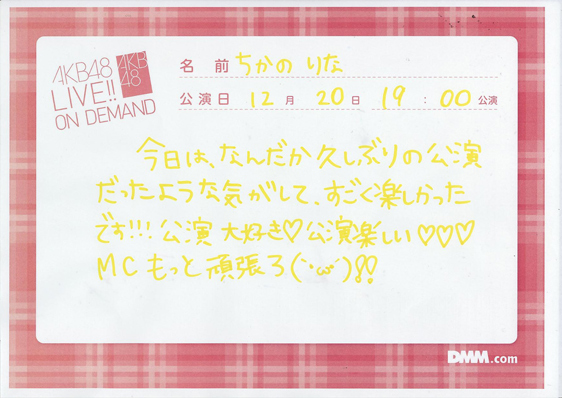 AKB48
LIVE!!
ON DEMAND
AKB
48
名前 ちかの りな
公演日 12月 20日 19:00公演
今日は、なんだか久しぶりの公演
だったような気がして、すごく楽しかった
です!!! 公演 大好き♡公演楽しい♡♡♡
MC もっと頑張ろ(`･ω･´)!!
DMM.com